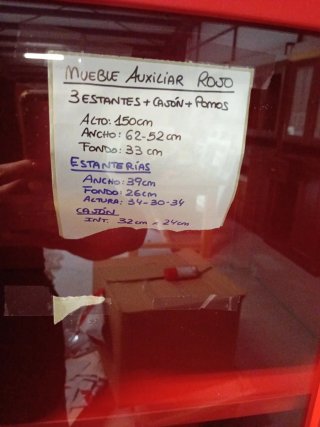 MUEBLE AUXILIAR ROJO
3 ESTANTES + CAJÓN + POMOS
ALTO: 150cm
ANCHO: 62-52cm
FONDO: 33 cm
ESTANTERÍAS
ANCHO: 39cm
FONDO: 26cm
ALTURA: 34-30-34
CAJÓN
INT. 32cm x 24cm